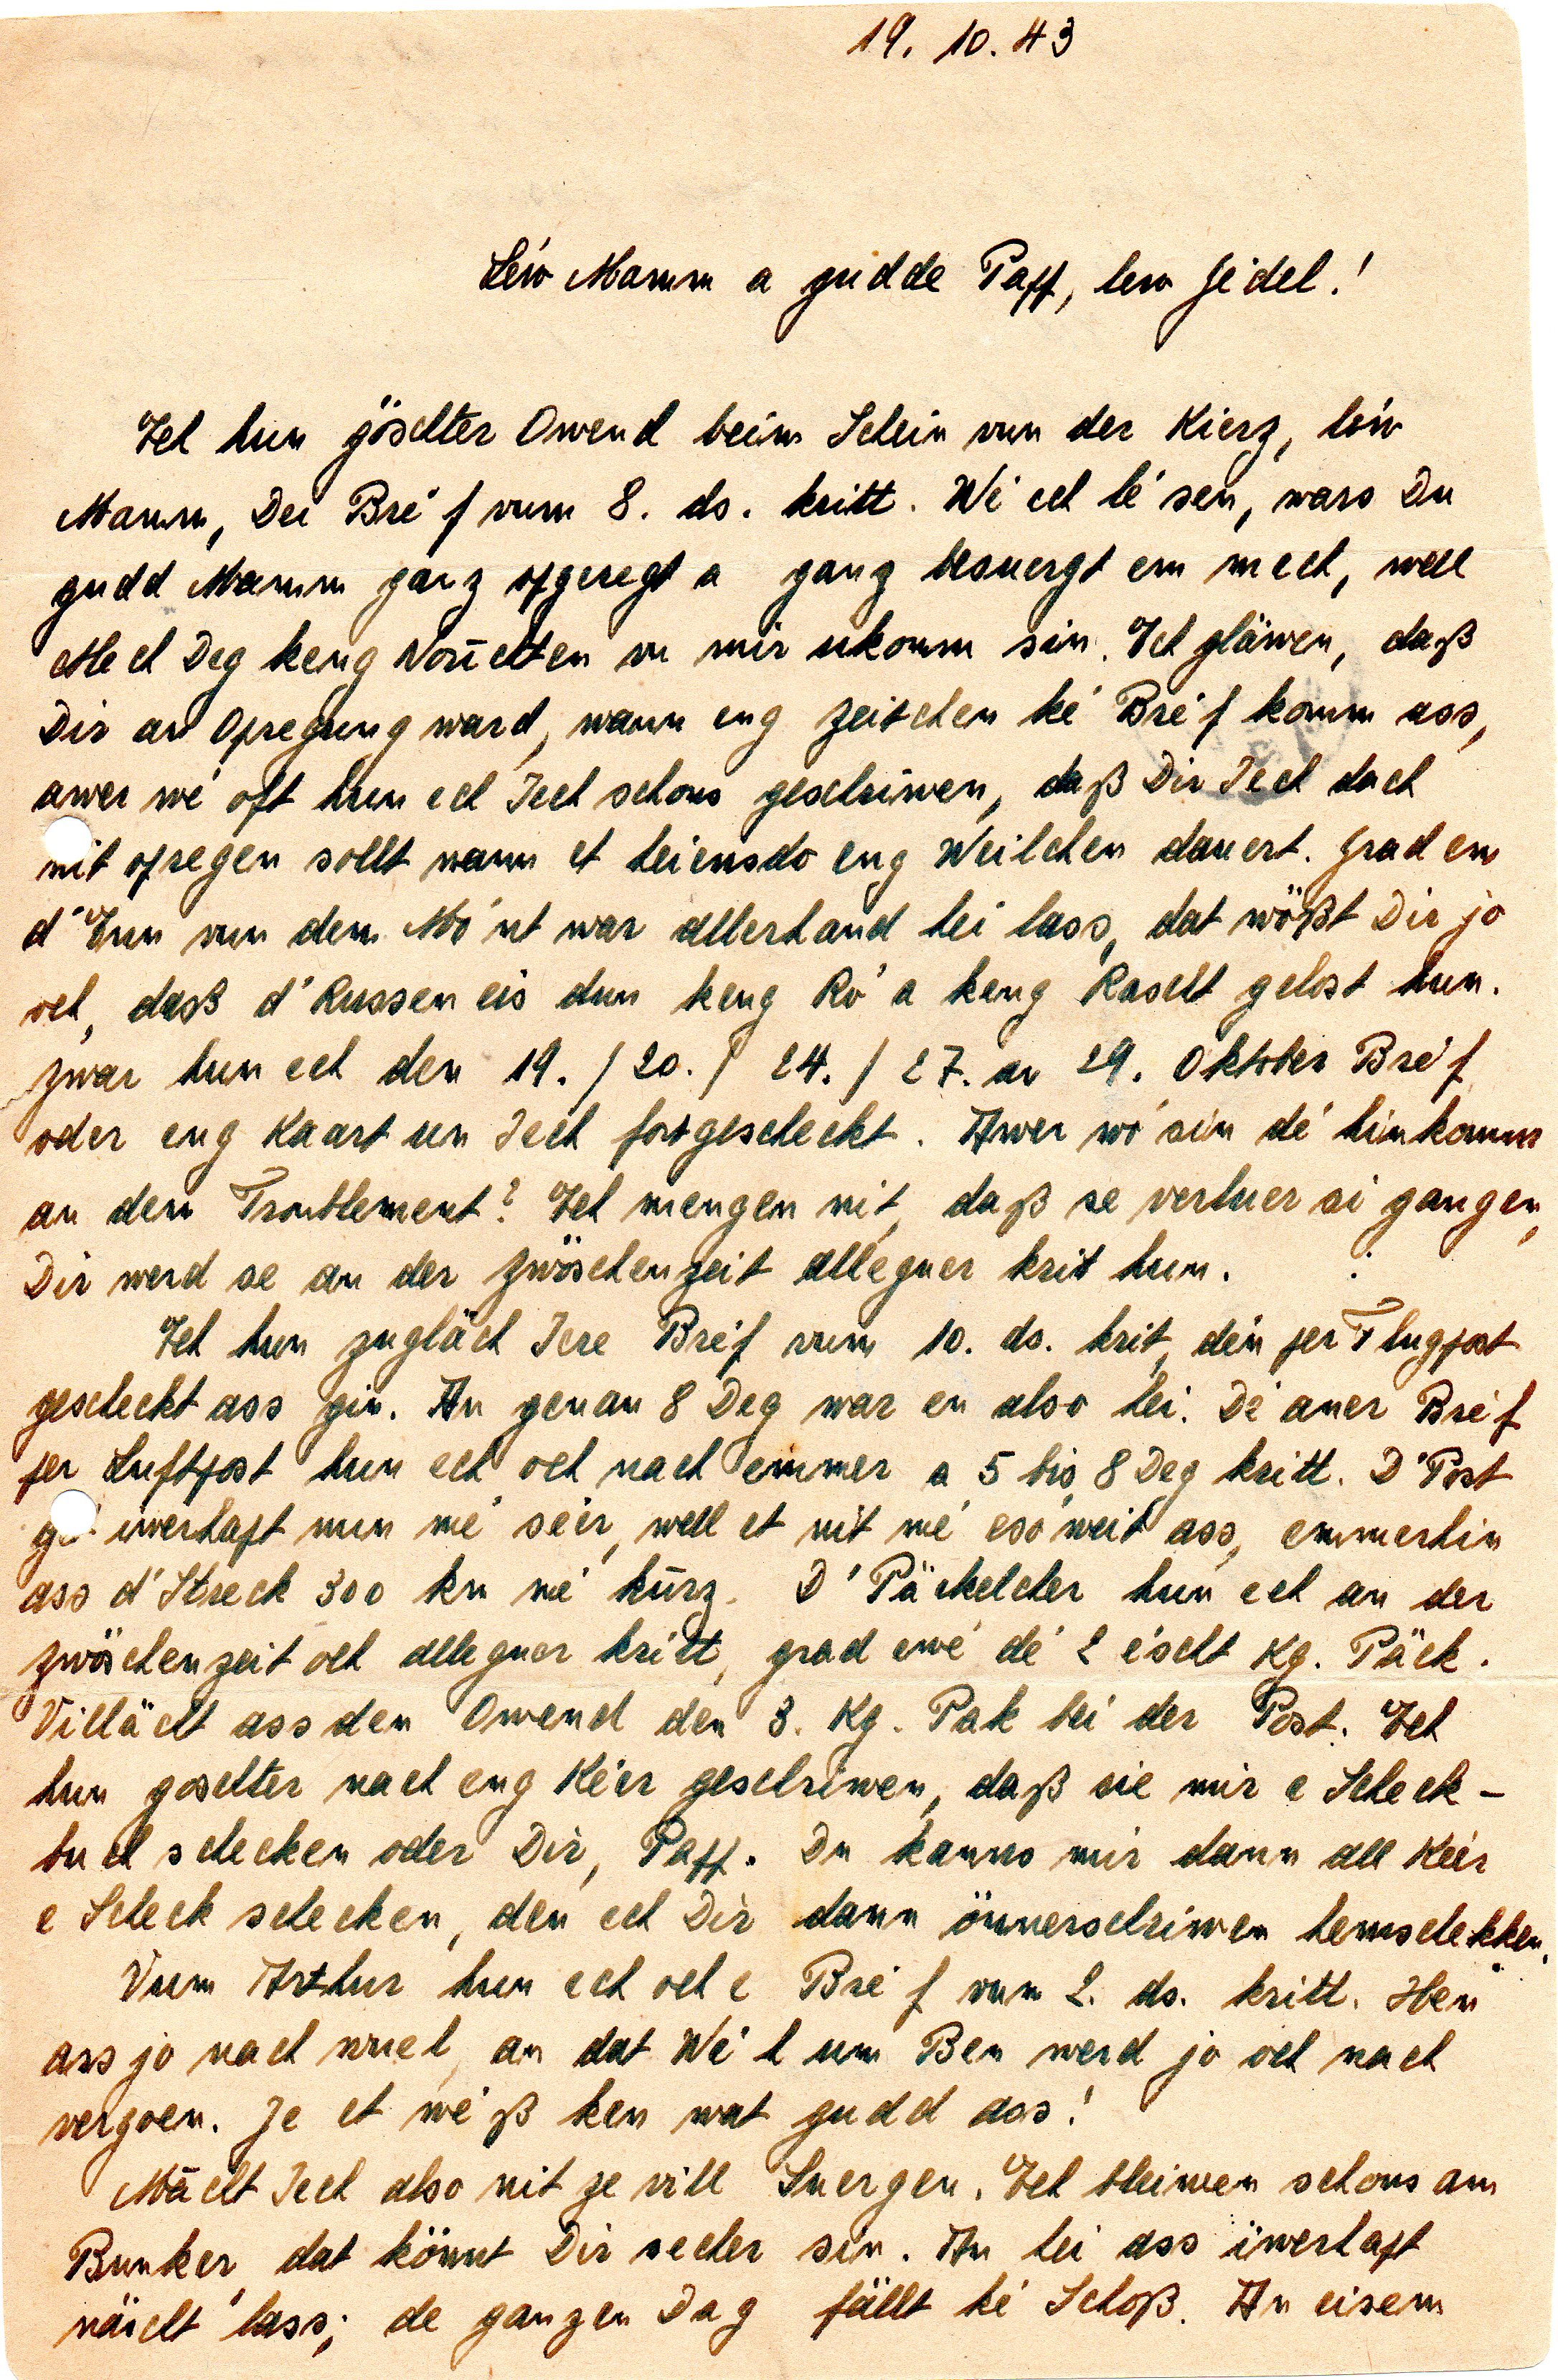 19. 10. 43
Léiw Mamm a gudde Paff, lew Jéidel!
Ech hun göschter Owend beim Schein vun der Kierz, léiw
Mamm, Dei Bréf vum 8. ds. kritt. Wé ech lésen, wars Du
gudd Mamm ganz opgeregt a ganz besuergt em mech, well
etlech Deg keng Noüchten vu mir ukomm sin. Ech gläwen, daß
Dir an Opregung ward, wann eng Zeitchen ké Bréf komm ass,
awer wé oft hun ech Iech schons geschriwen, daß Dir Iech dach
nit opregen sollt wann et heiensdo eng Weilchen dauert. Grad em
d'Enn vun dem Mónt war allerhand hei lass, dat wößt Dir jo
och, daß d'Russen eis dun keng Ró a keng Rascht gelost hun.
Zwar hun ech den 19. / 20. / 24. / 27. an 29. Oktober Bréf
oder eng Kaart un Iech fortgescheckt. Awer wó sin dé hinkomm
an dem Troublement? Ech mengen nit, daß se verluer si gangen,
Dir werd se an der Zwöschenzeit alleguer krit hun.
Ech hun zugläch Iere Bréf vum 10. ds. krit, dén per Flugpost
gescheckt ass gin. An genau 8 Deg war en also hei. Dé aner Bréf
per Luftpost hun ech och nach emmer a 5 bis 8 Deg kritt. D'Post
gé iwerhapt nun mé séier, well et nit mé esó weit ass, emmerhin
ass d'Streck 300 km mé kürz. D'Päckelcher hun ech an der
Zwöschenzeit och alleguer kritt, grad ewé dé 2 éischt Kg. Päck.
Villächt ass den Owend den 3. Kg. Pak bei der Post. Ech
hun goschter nach eng Kéier geschriwen, daß sie mir e Scheck-
buch schecken oder Dir, Paff. Du kanns mir dann all Kéier
e Scheck schecken, den ech Dir dann önnerschriwen hemschekken.
Vum Arthur hun ech och e Bréf vum 2. ds. kritt. Hen
ass jo nach wuel, an dat Wéh um Ben werd jo och nach
vergoen. Je et wéß ken wat gudd ass!
Mächt Iech also nit ze vill Suergen. Ech bleiwen schons am
Bunker, dat könnt Dir secher sin. An hei ass iwerhapt
näischt lass; de ganzen Dag fällt ké Schoß. An eisem